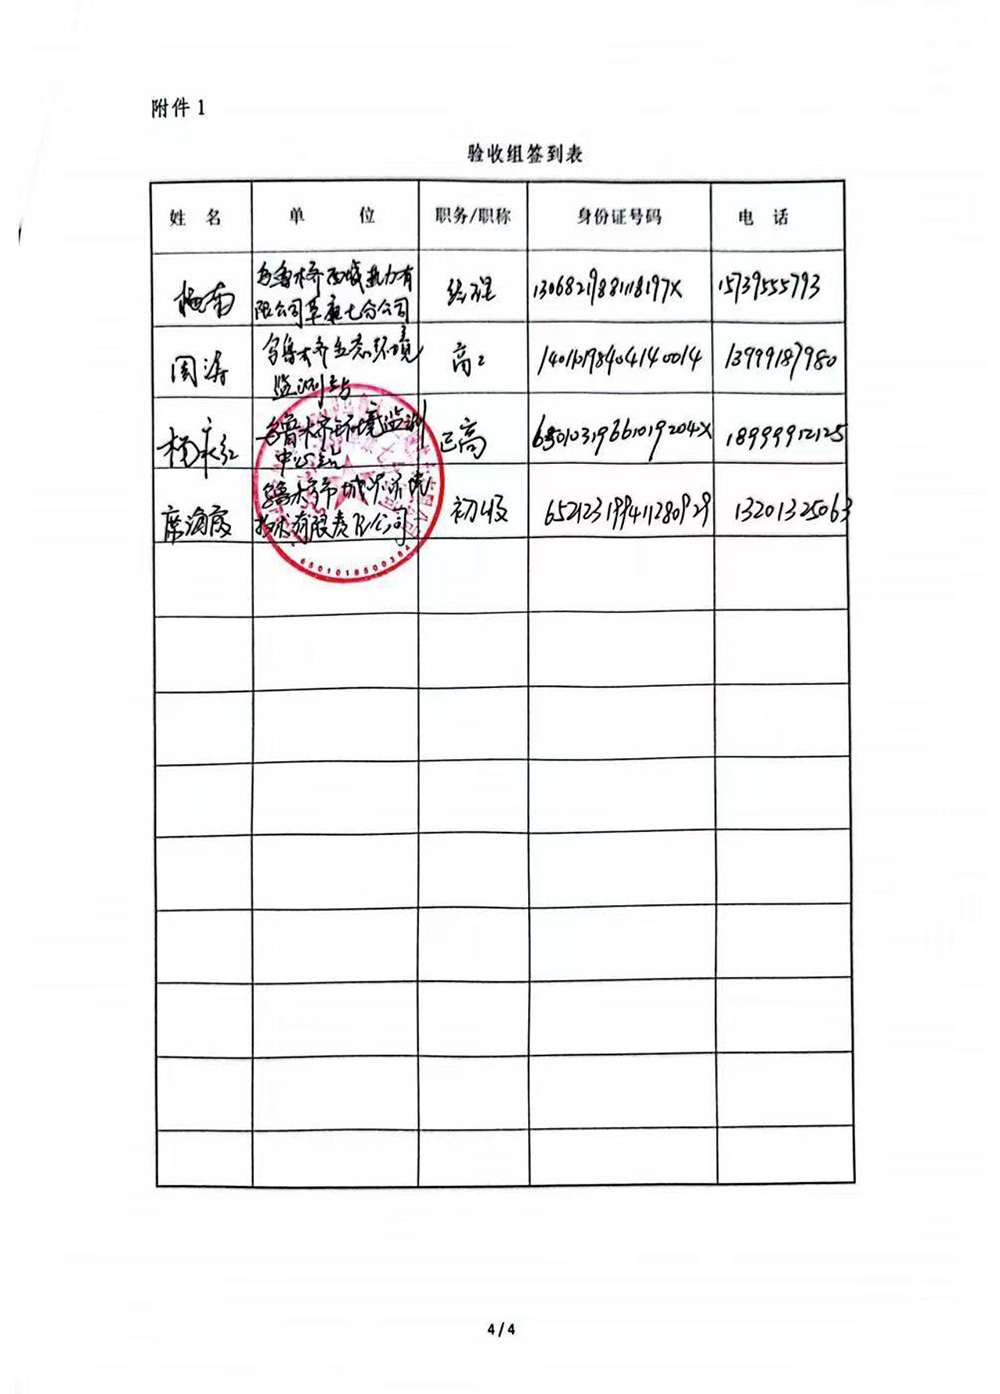 附件 1
验收组签到表
姓 名 单 位 职务/职称 身份证号码 电 话
梅南 乌鲁木齐西城热力有 经理 13068219881118197X 15739555793
限公司阜康七分公司
周涛 乌鲁木齐生态环境 高工 14010198404140014 13999187980
监测站
杨永红 乌鲁木齐环境监测 正高 65010319661019204X 18999912125
中心站
席海霞 乌鲁木齐市城 初级 652123199411280929 13201325063
技术有限责任公司
6501018500384
4 / 4